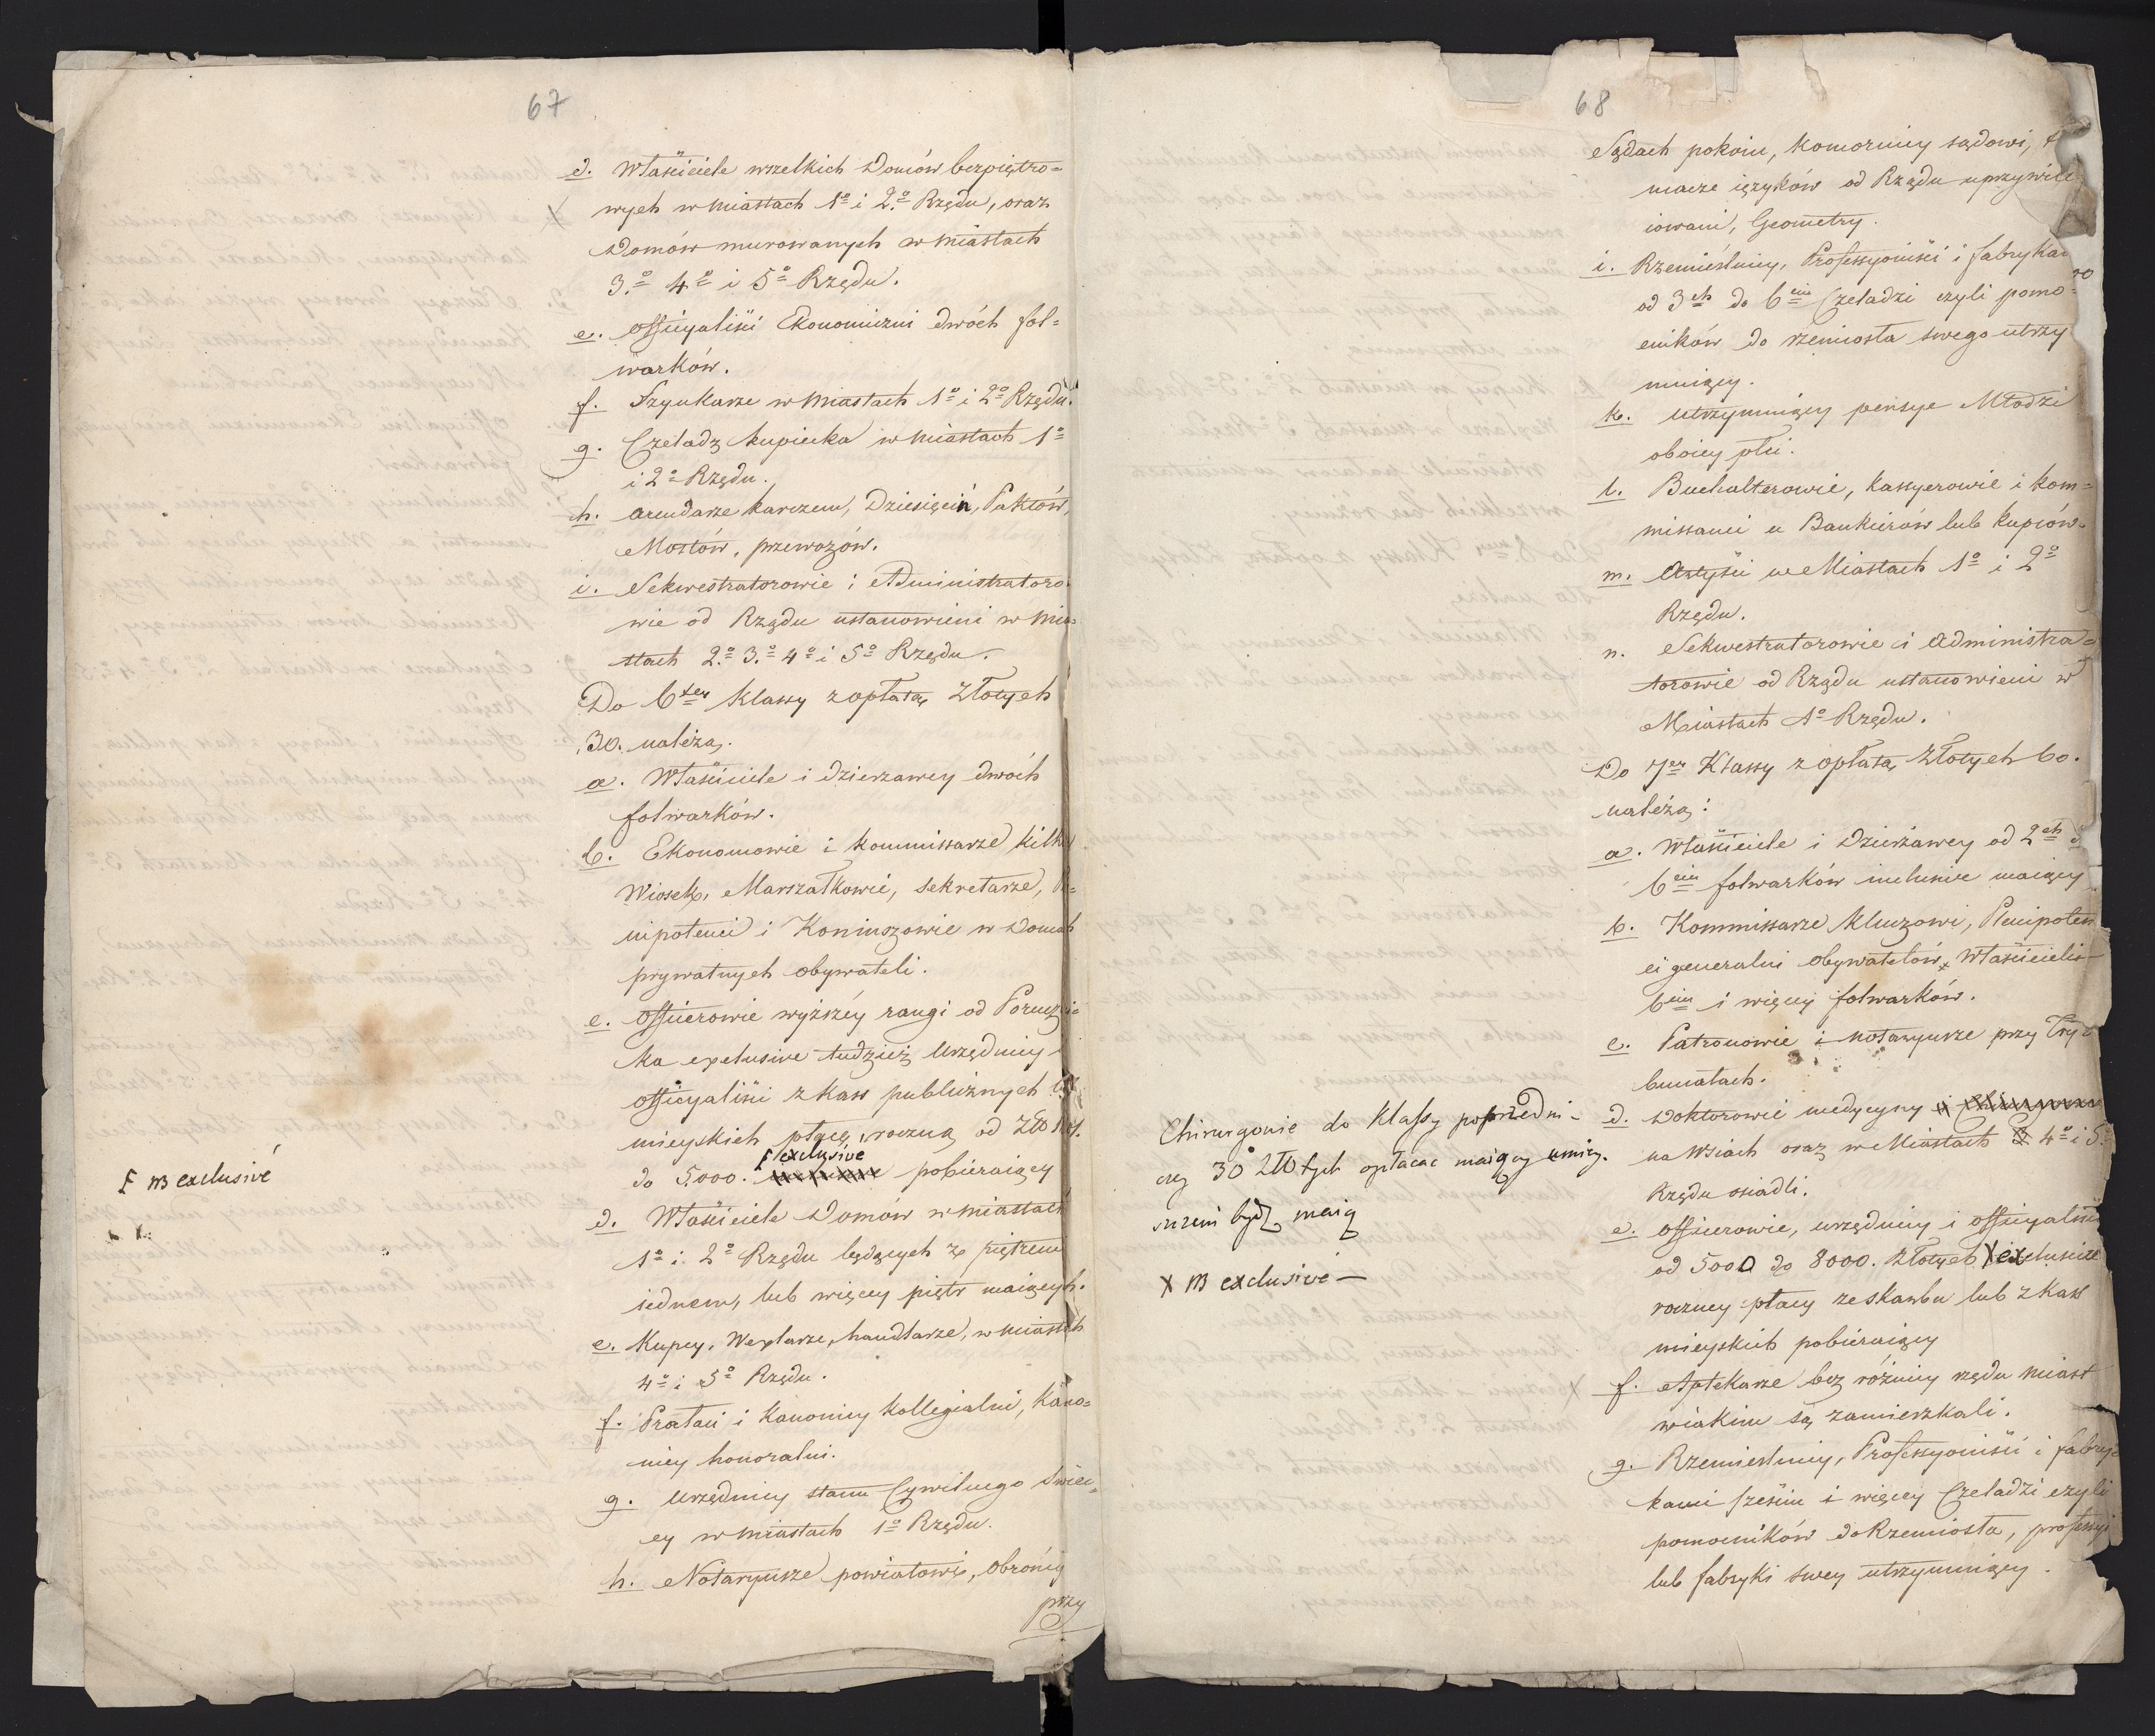 67
d. Właściciele wszelkich Domów bezpiętro=
wych w Miastach 1º i 2º Rzędu, oraz
Domów murowanych w Miastach
3º 4º i 5º Rzędu.
e. Officyaliści Ekonomiczni dwóch fol=
warków.
f. Szynkarze w Miastach 1º i 2º Rzędu.
g. Czeladz kupiecka w Miastach 1º
i 2º Rzędu.
h. Arendarze karczem, Dziesięcin, Paktów,
Mostów, przewozów.
i. Sekwestratorowie i Administratoro
wie od Rządu ustanowieni w Mia=
stach 2º 3º 4º i 5º Rzędu.
Do 6tey Klassy z opłatą Złotych
30. należą.
a. Właściciele i dzierzawcy dwóch
folwarków.
b. Ekonomowie i kommissarze kilku
Wiosek, Marszałkowie, sekretarze,
nipotenci i Koniuszowie w Domach
prywatnych obywateli.
c. Officerowie wyższéy rangi od Poruczni=
ka exclusive tudzież Urzędnicy
officyaliści z kass publicznych
mieyskich płacę roczną od
do 5.000. exclusive pobieraiący
Ɨ ms exclusivé
d. Właściciele Domów w miastach
1º i 2º Rzędu będących z piętrem
iednem, lub więcey piętr maiących.
e. Kupcy, Wexlarze, handlarze, w miastach
4º i 5º Rzędu.
f. Prałaci i Kanonicy Kollegialni, Kano=
nicy honoralni.
g. Urzędnicy stanu Cywilnego Świec=
cy w Miastach 1º Rzędu.
h. Notaryusze powiatowi, Obrońcy
przy
68
Sądach pokoiu, Komornicy sądowi,
macze ięzyków od Rządu uprzywile
iowani, Geometry.
i. Rzemieślnicy, Professyoniści i fabrykan
od 3ch do 6ciu Czeladzi czyli pomo=
cników do rzemiosła swego utrzy
muiący.
k. Utrzymuiący pensye Młodzi
oboiey płci.
l. Buchalterowie, Kassyerowie i kom=
missanci u Bankierów lub kupców.
m. Artyści w Miastach 1º i 2º
Rzędu.
n. Sekwestratorowie i Administra=
torowie od Rządu ustanowieni w
Miastach 1º Rzędu.
Do 7ey Klassy z opłatą Złotych 60.
należą:
a. Właściciele i Dzierżawcy od 2ch d
6ciu folwarków inclusive maiący
b. Kommissarze kluczowi, Plenipoten
ci generalni obywatelów, Właścicieli
6ciu i więcey folwarków.
c. Patronowie i notaryusze przy Try
bunałach.
d. Doktorowie medycyny
na Wsiach oraz w Miastach 4º i 5º
Rzędu osiadli.
Chirurgowie do Klassy poprzedni-
czey 30 Złotych opłacać maiący umie.
szczeni bydź maią
e. Officerowie, urzędnicy i officyaliści
od 5000 do 8000. Złotych X exclusive
roczney płacy ze skarbu lub z kass
mieyskich pobieraiący
X ms exclusive —
f. Aptekarze bez różnicy rzędu Miast
w iakim są zamieszkali.
g. Rzemieslnicy, Professyoniści i fabry
kanci sześciu i więcey Czeladzi czyli
pomocników do Rzemiosła, professyi
lub fabryki swey utrzymuiący.